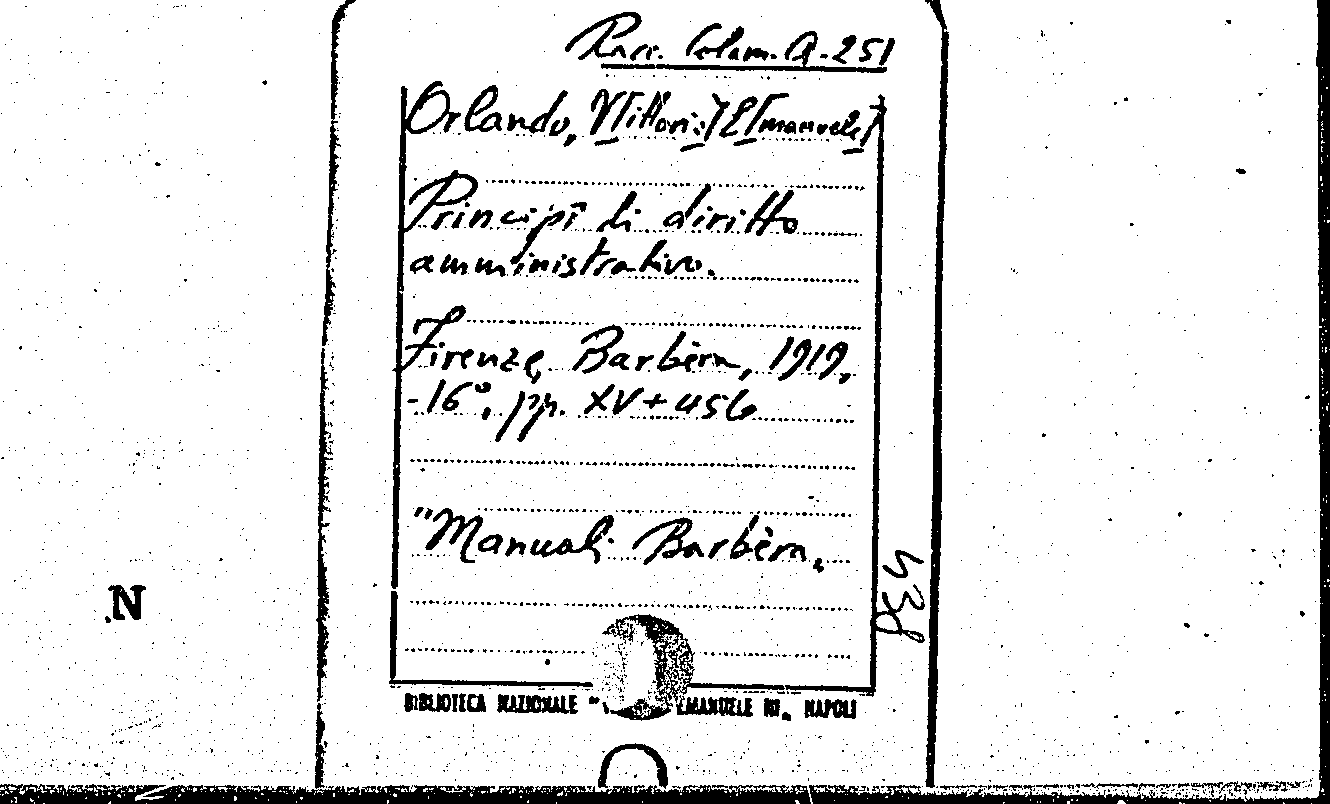 Racc. Colam. A-251
Orlando, V[ittorio] E[manuele]
Principî di diritto
amministrativo.
Firenze, Barbèra, 1919,
-16°, pp. XV+456
"Manuali Barbèra„
N
BIBLIOTECA NAZIONALE " EMANUELE III„ NAPOLI